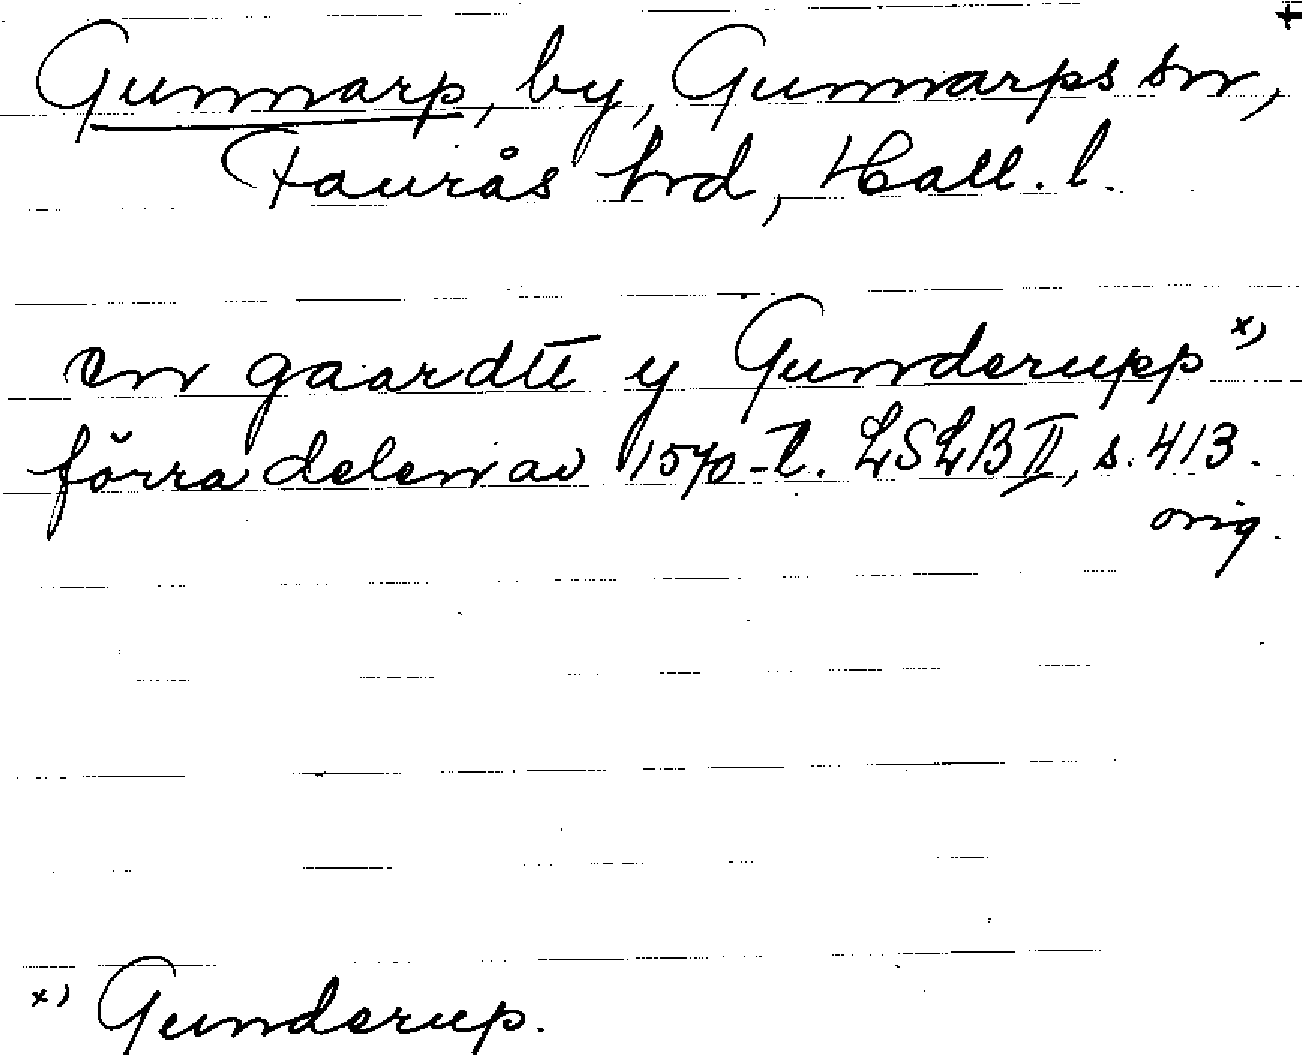 +
Gunnarp, by, Gunnarps sn,
Faurås hd, Hall. l.
en gaardtt y Gunderupp x)
förra delen av 1570-t. LSLB II, s. 413.
orig.
x) Gunderup.